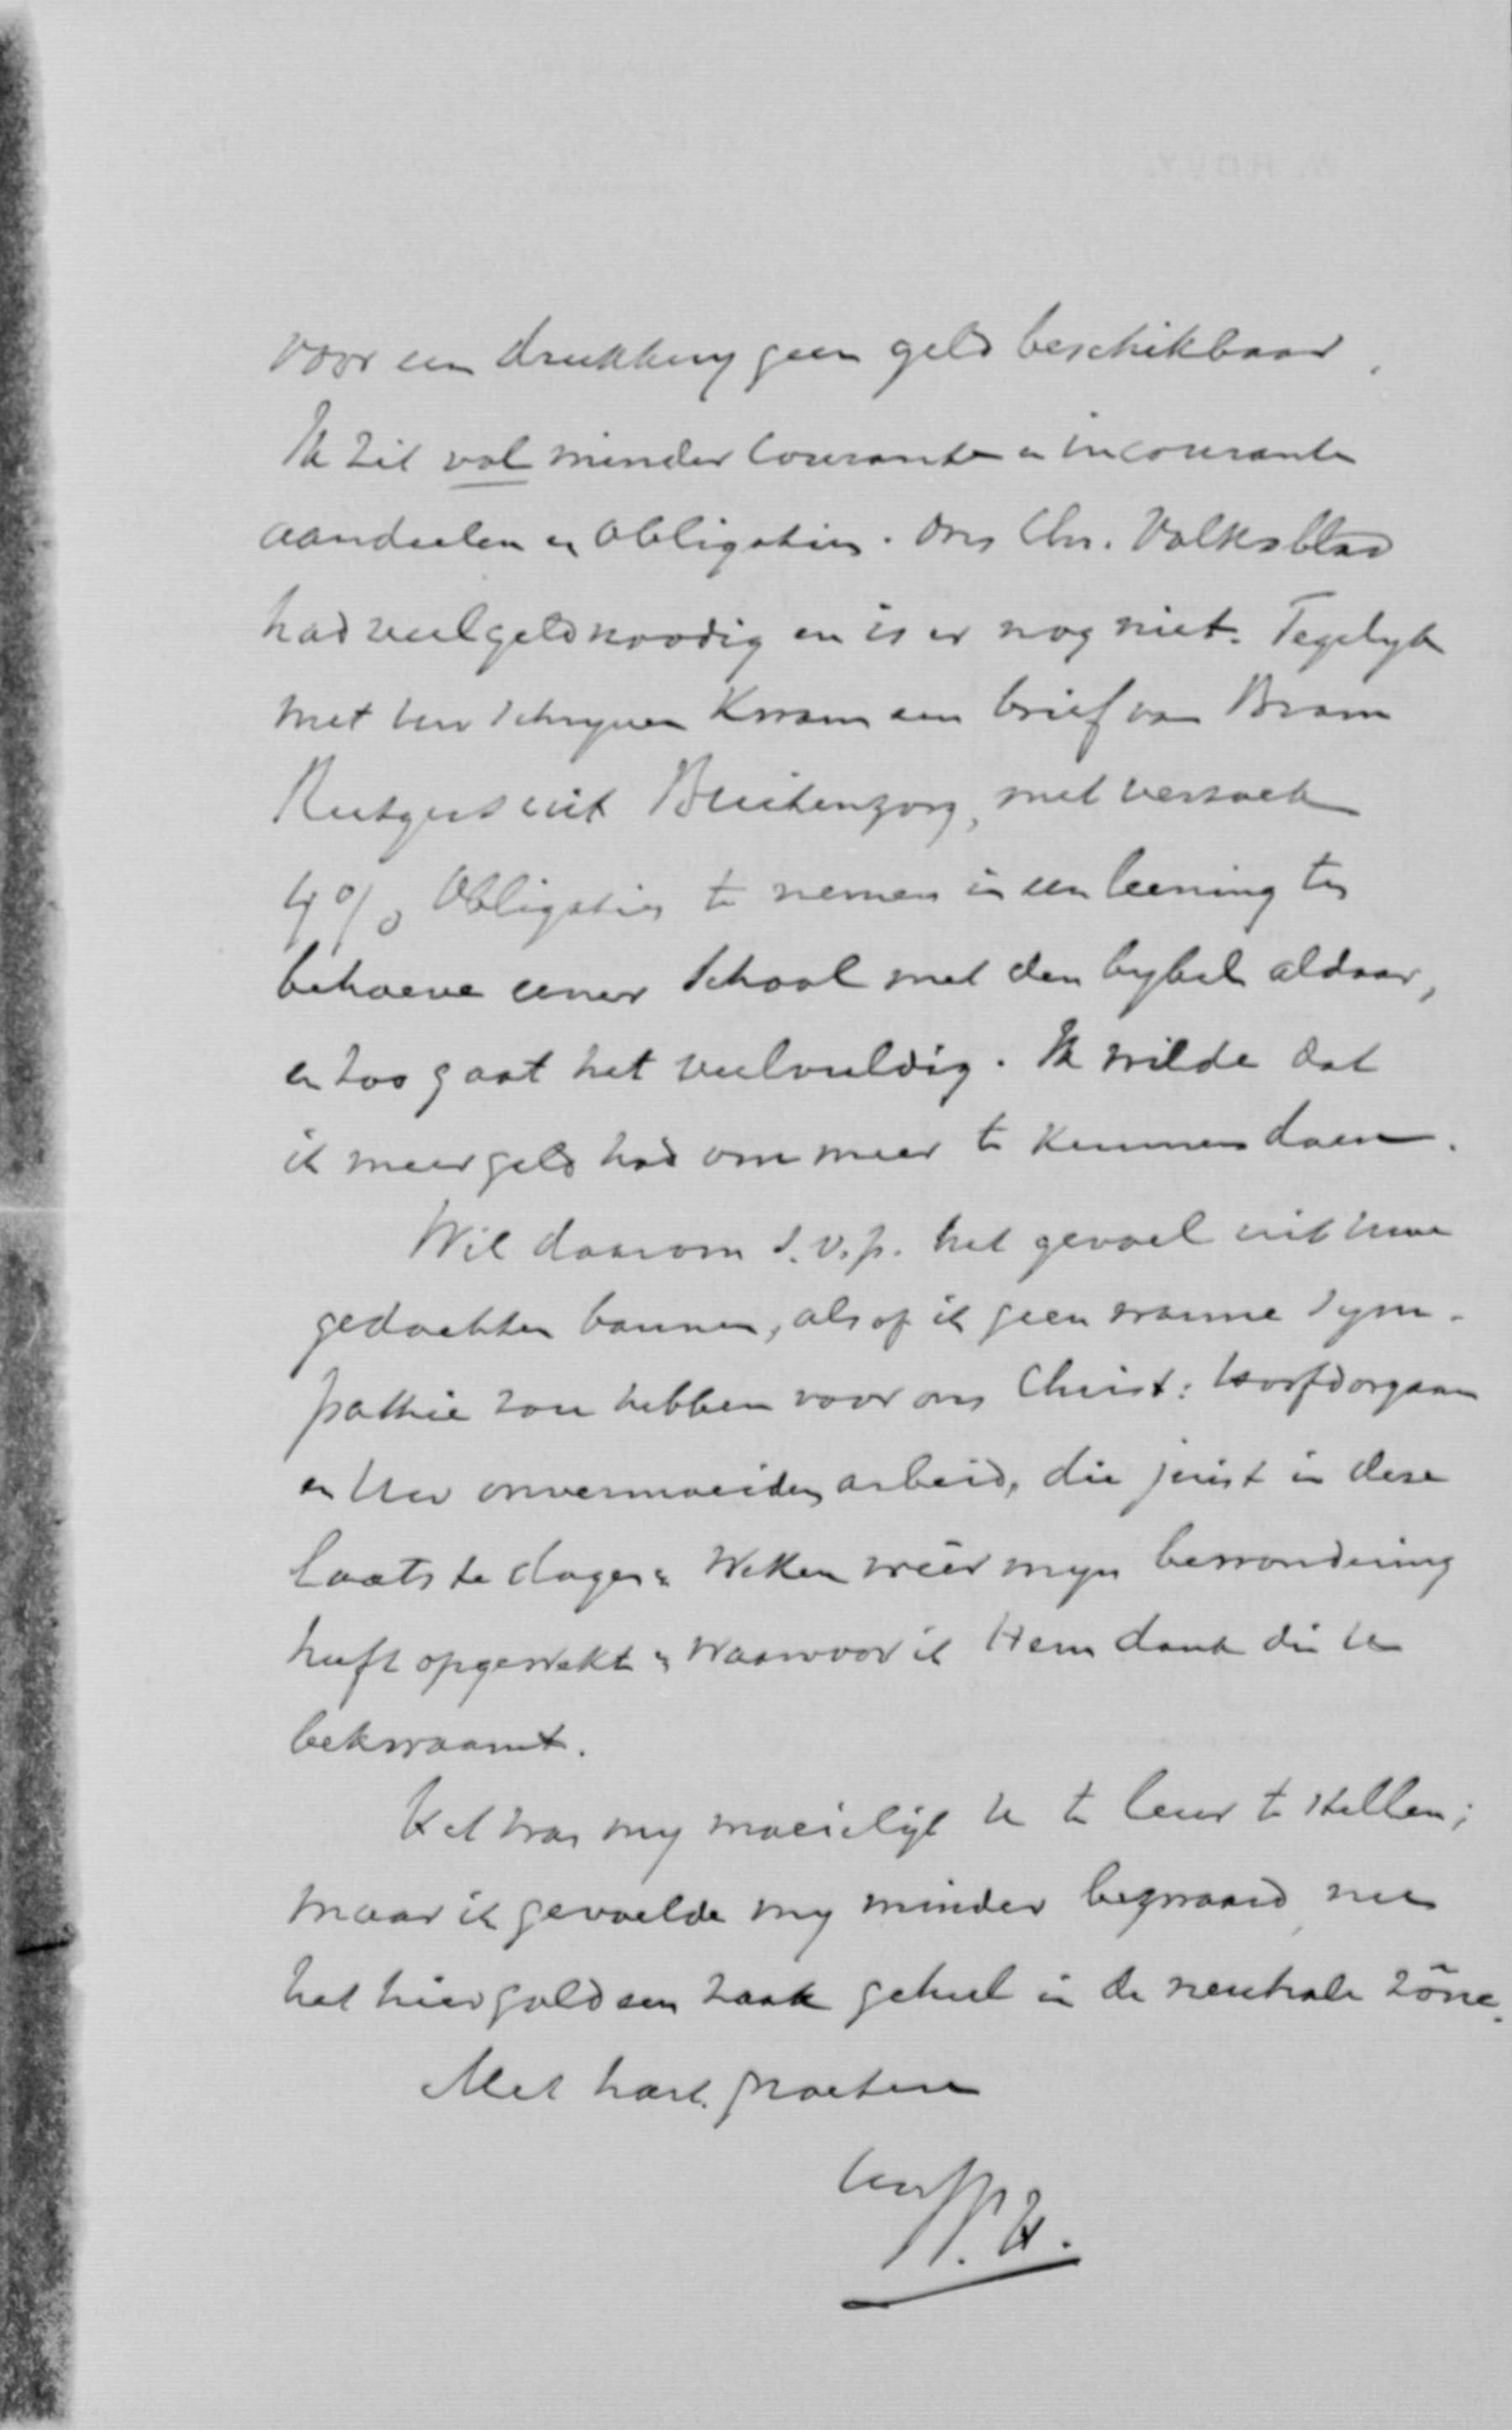 voor een drukkery geen geld beschikbaar.
Ik zit vol minder courante & incourante
aandeelen en obligatien. Ons Chr. Volksblad
had veel geld noodig en is er nog niet. Tegelyk
met Uw schryven kwam een brief van Bram
Rutgers uit Buitenzorg, met verzoek
4% Obligatien te nemen in een leening ten
behoeve eener School met den bybel aldaar,
en zoo gaat het veelvuldig. Ik wilde dat
ik meer geld had om meer te kunnen doen.
Wil daarom s.v.p. het gevoel uit Uwe
gedachten bannen, alsof ik geen warme sym-
pathie zou hebben voor ons Christ: Hoofdorgaan
en Uw onvermoeiden arbeid, die juist in deze
laatste dagen & weken wéér myn bewondering
heeft opgewekt & waarvoor ik Hem dank die U
bekwaamt.
Het was my moeielyk U te leur te stellen;
maar ik gevoelde my minder bezwaard nu
het hier gold een zaak geheel in de neutrale zône.
Met hart. groeten
W.H.